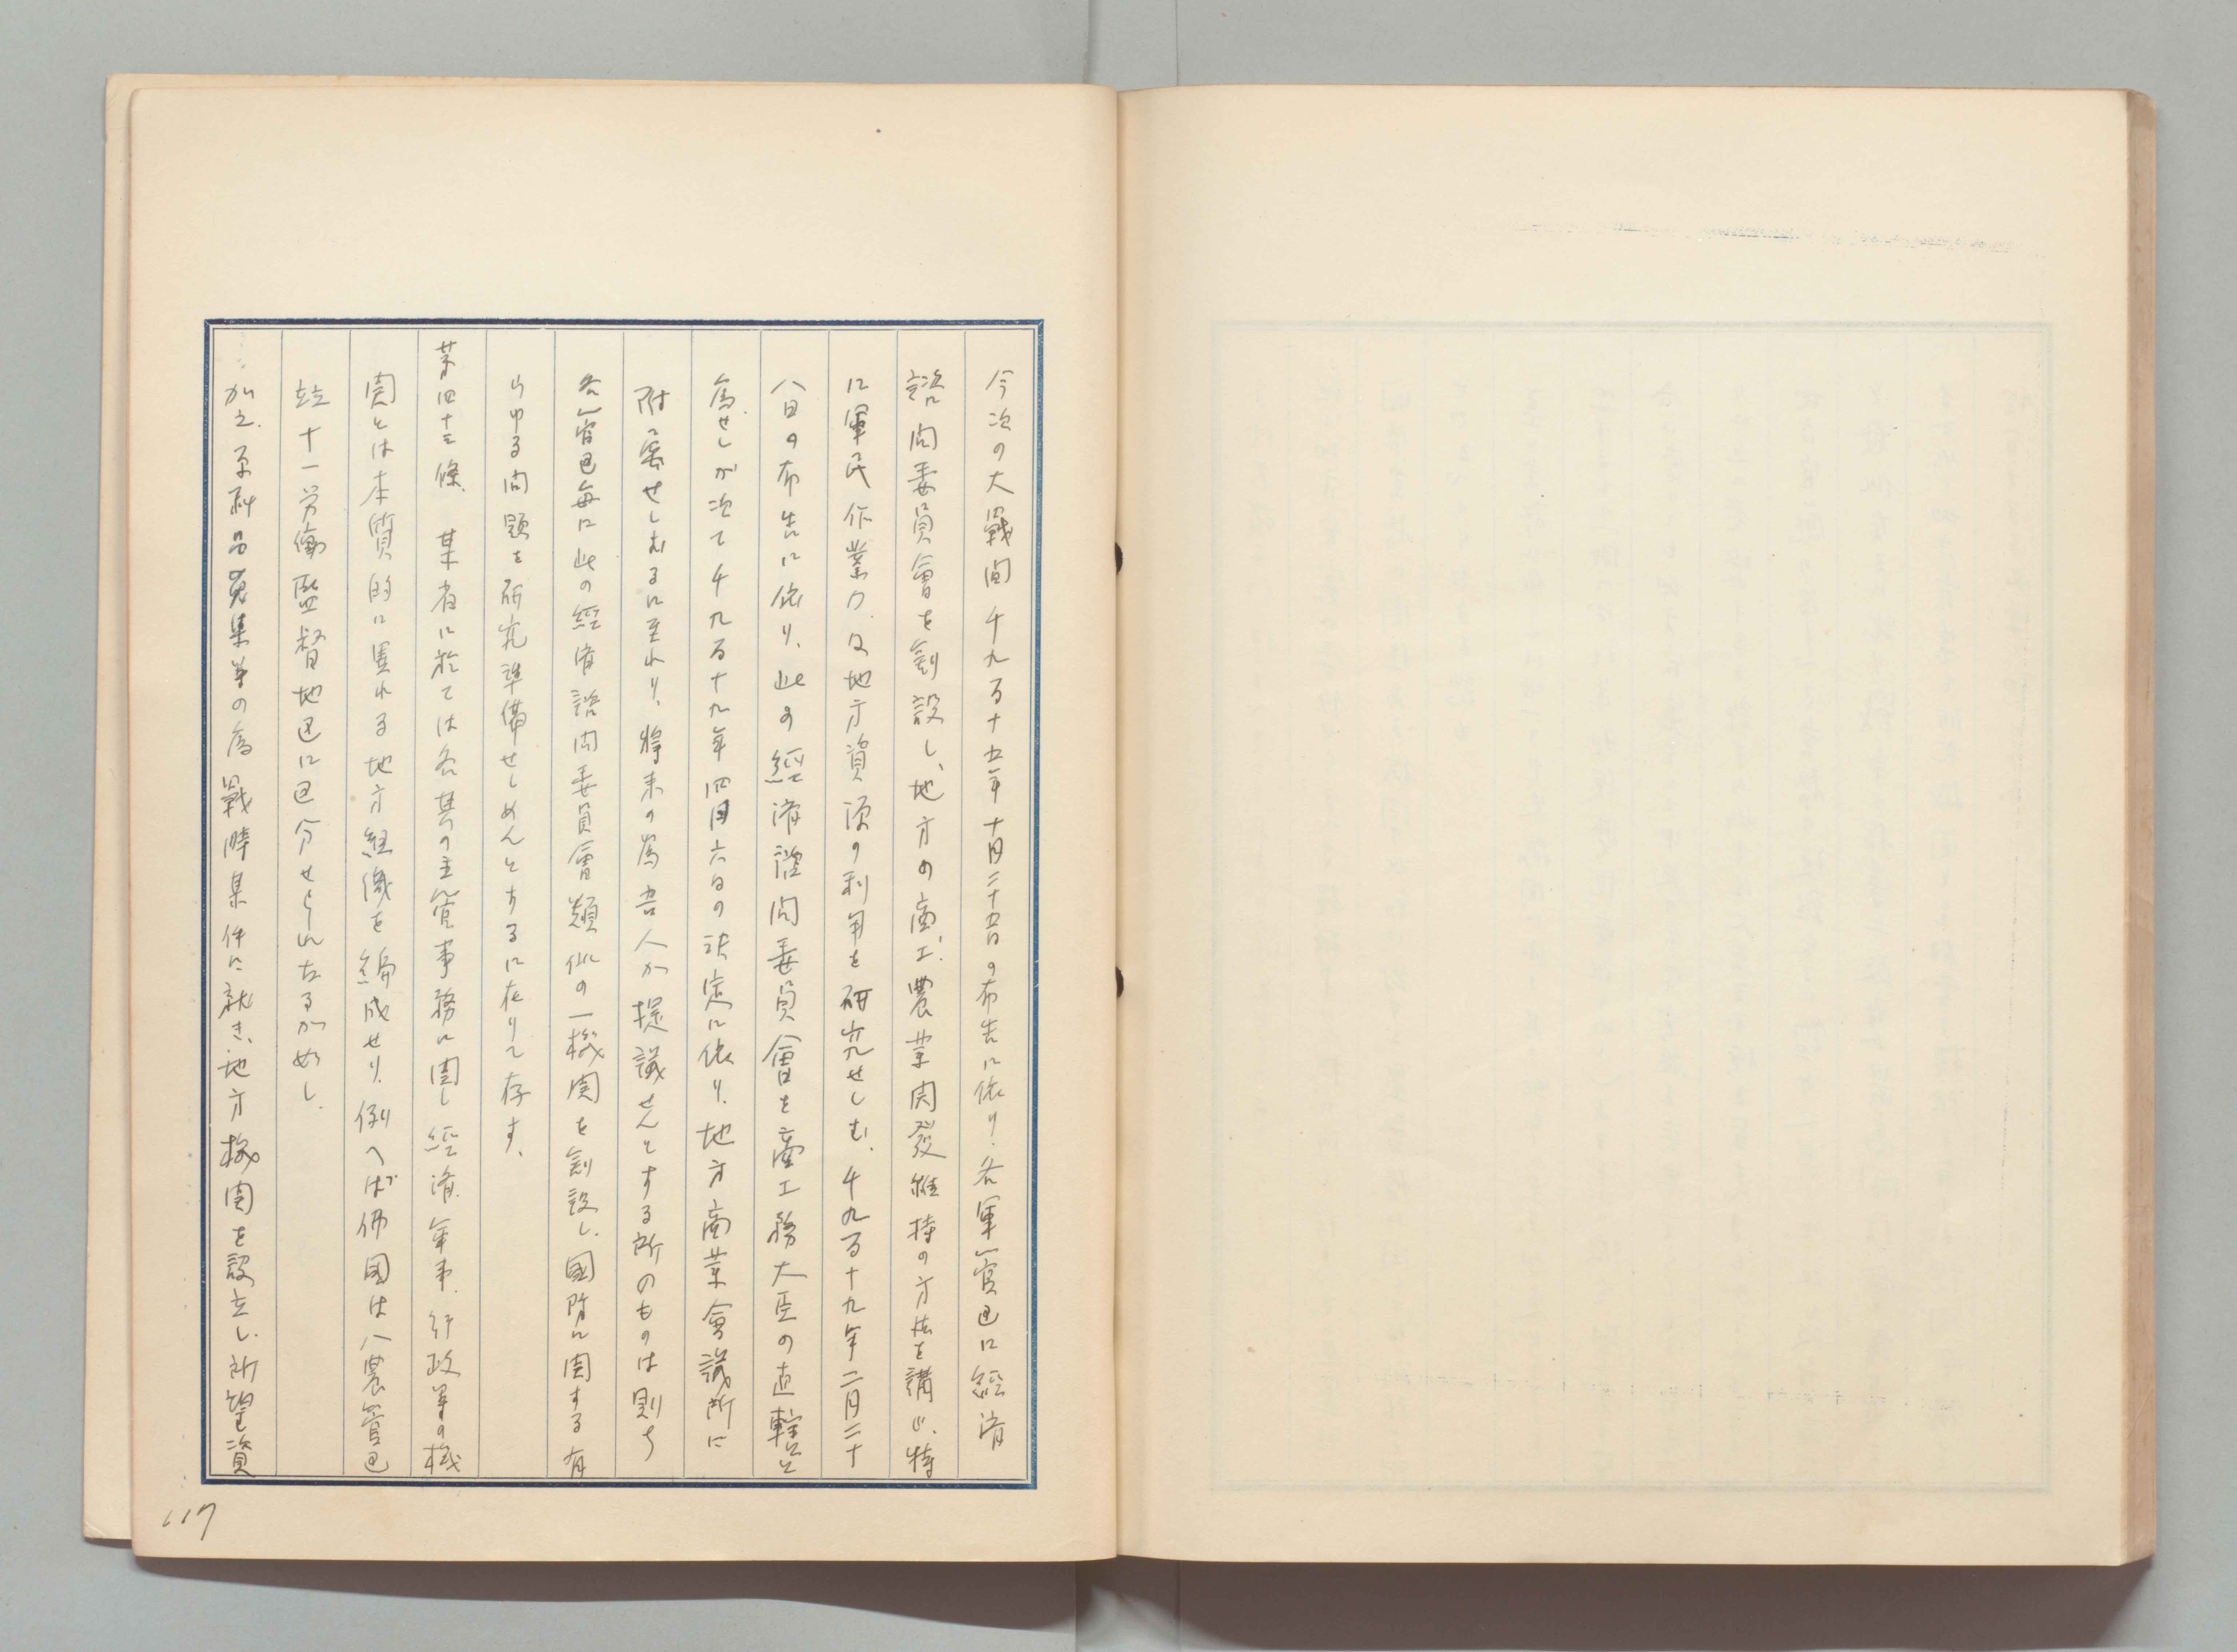 今次の大戰間千九百十五年十月二十五日の布告に依り、各軍管区に經済
諮問委員會を創設し、地方の商、工、農業開發維持の方法を講じ、特
に軍民作業力、及地方資源の利用を研究せしむ、千九百十九年二月二十
八日の布告に依り、此の經済諮問委員會を商工務大臣の直轄と
為せしが次て千九百十九年四月六日の決定に依り、地方商業會議所に
附属せしむるに至れり、將来の為吾人が提議せんとする所のものは則ち
各管区毎に此の經済諮問委員會類似の一機関を創設し、國防に関する有
らゆる問題を研究準備せしめんとするに在りて存す、
第四十三條、某省に於ては各其の主管事務に関し經済、軍事、行政等の機
関とは本質的に異れる地方組織を編成せり、例へば佛国は八農管区
竝十一労働監督地区に区分せられたるが如し、
加之、原料品蒐集等の為戰時某件に就き、地方機関を設立し、所望資
117